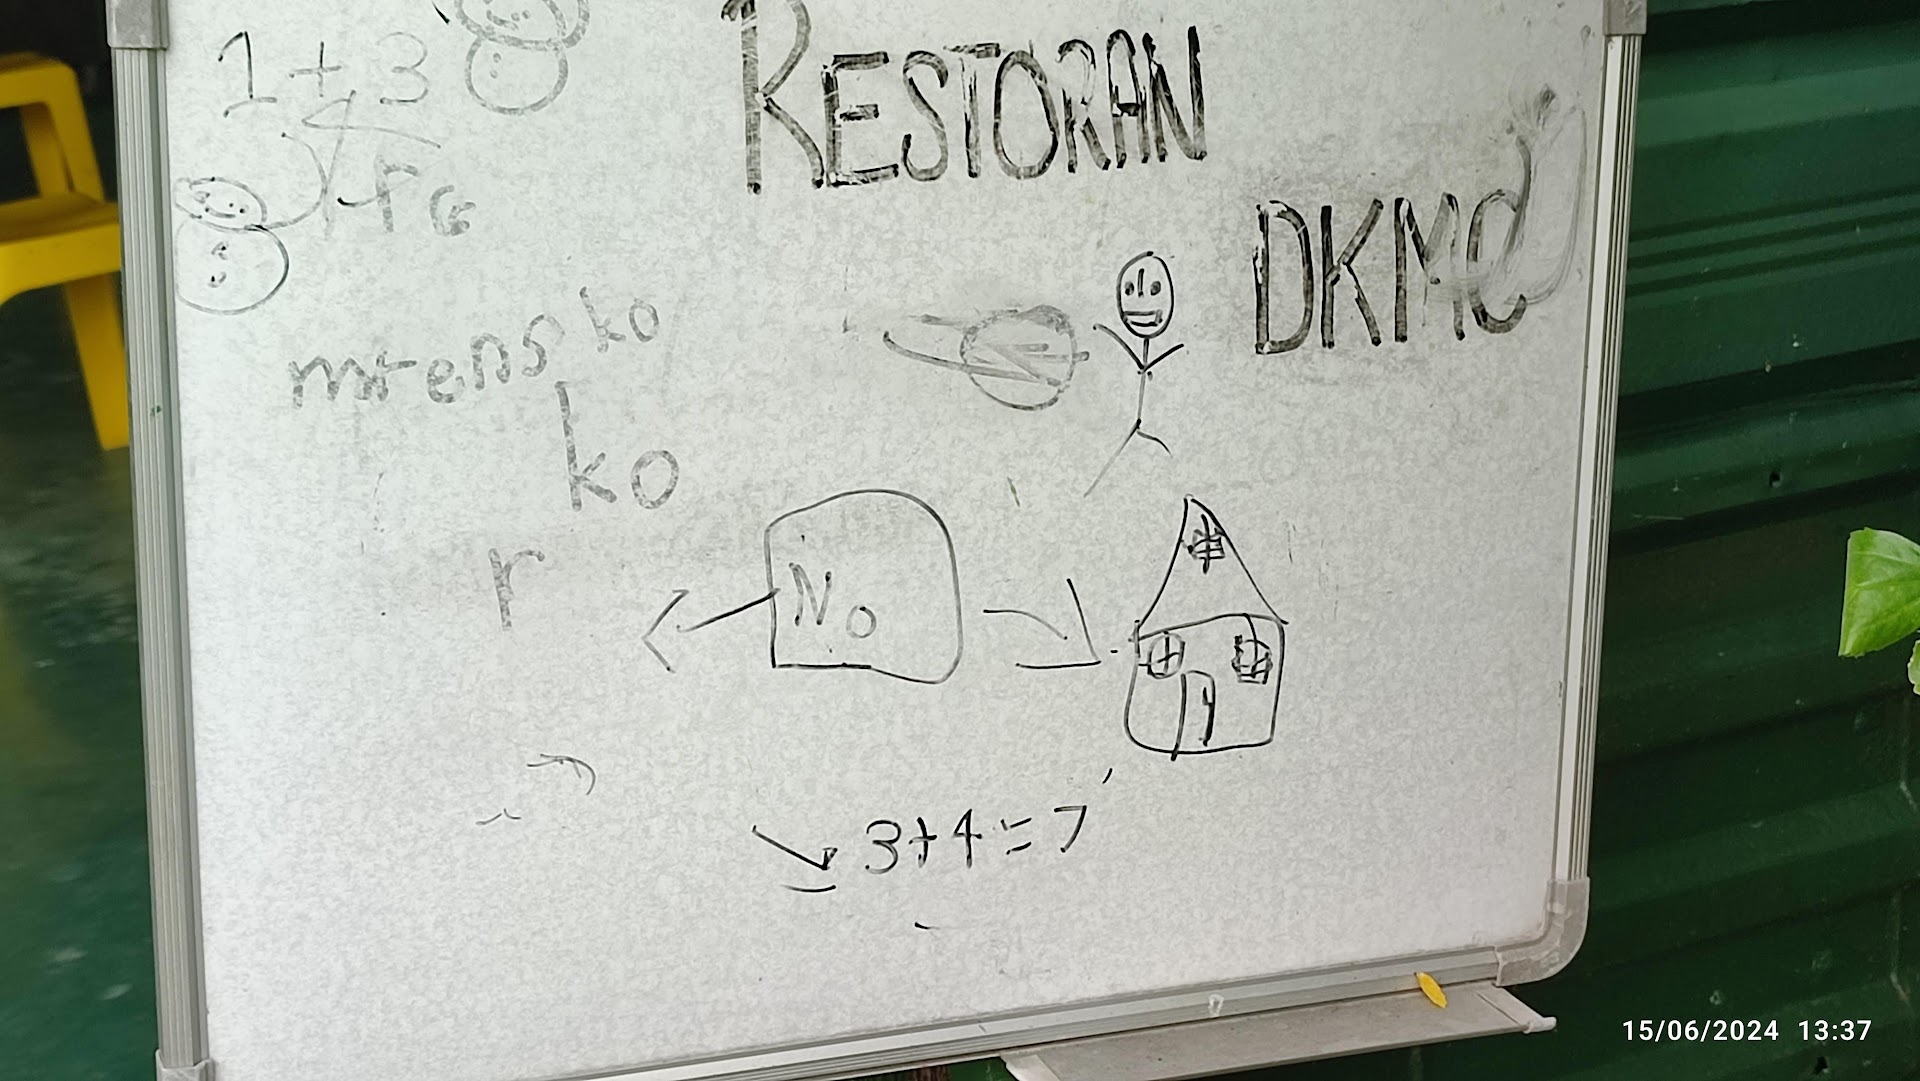 1+3
RESTORAN
DKMC
ko
ko
r
No
3+4=7
15/06/2024 13:37